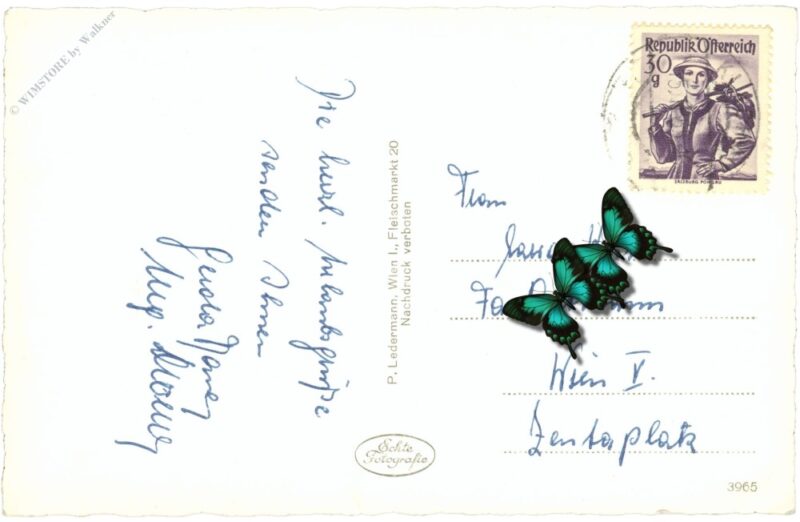 © WIMSTORE by Walkner
Die herzl. Urlaubsgrüße
senden Ihnen
Gerda
Mug.
P. Ledermann, Wien I., Fleischmarkt 20
Nachdruck verboten
Echte
Fotografie
Republik Österreich
30
g
SALZBURG, PONGAU
Frau
Fa
Wien V.
Zentaplatz
3965